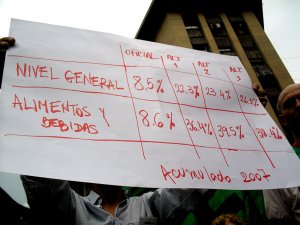 OFICIAL ALT 1 ALT 2 ALT 3
NIVEL GENERAL 8.5% 22.3% 23.4%
ALIMENTOS Y BEBIDAS 8.6% 36.4% 39.5%
Acumulado 2007